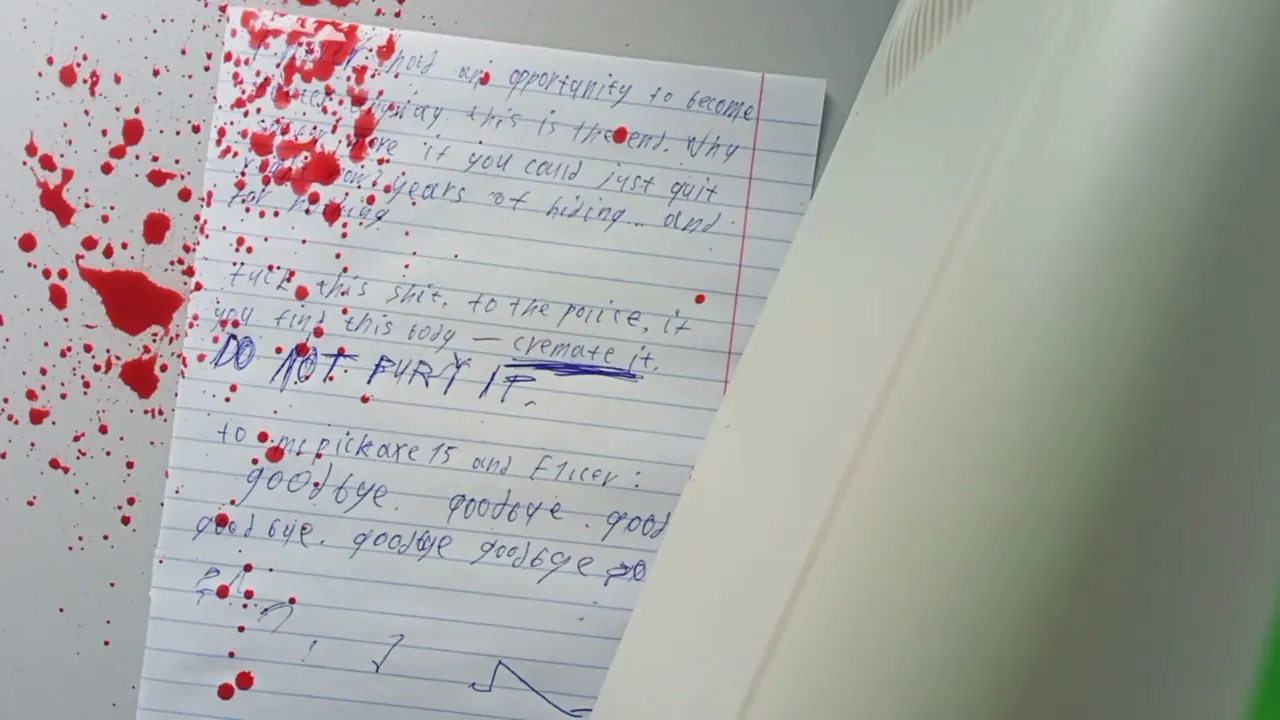 had an opportunity to become
anyway. this is the end. Why
more if you could just quit
years of hiding.. and
for nothing
fuck this shit. to the police, if
you find this body — cremate it.
DO NOT BURY IT.
to mcpickaxe15 and Flicer:
goodbye. goodbye. good
goodbye. goodbye goodbye go